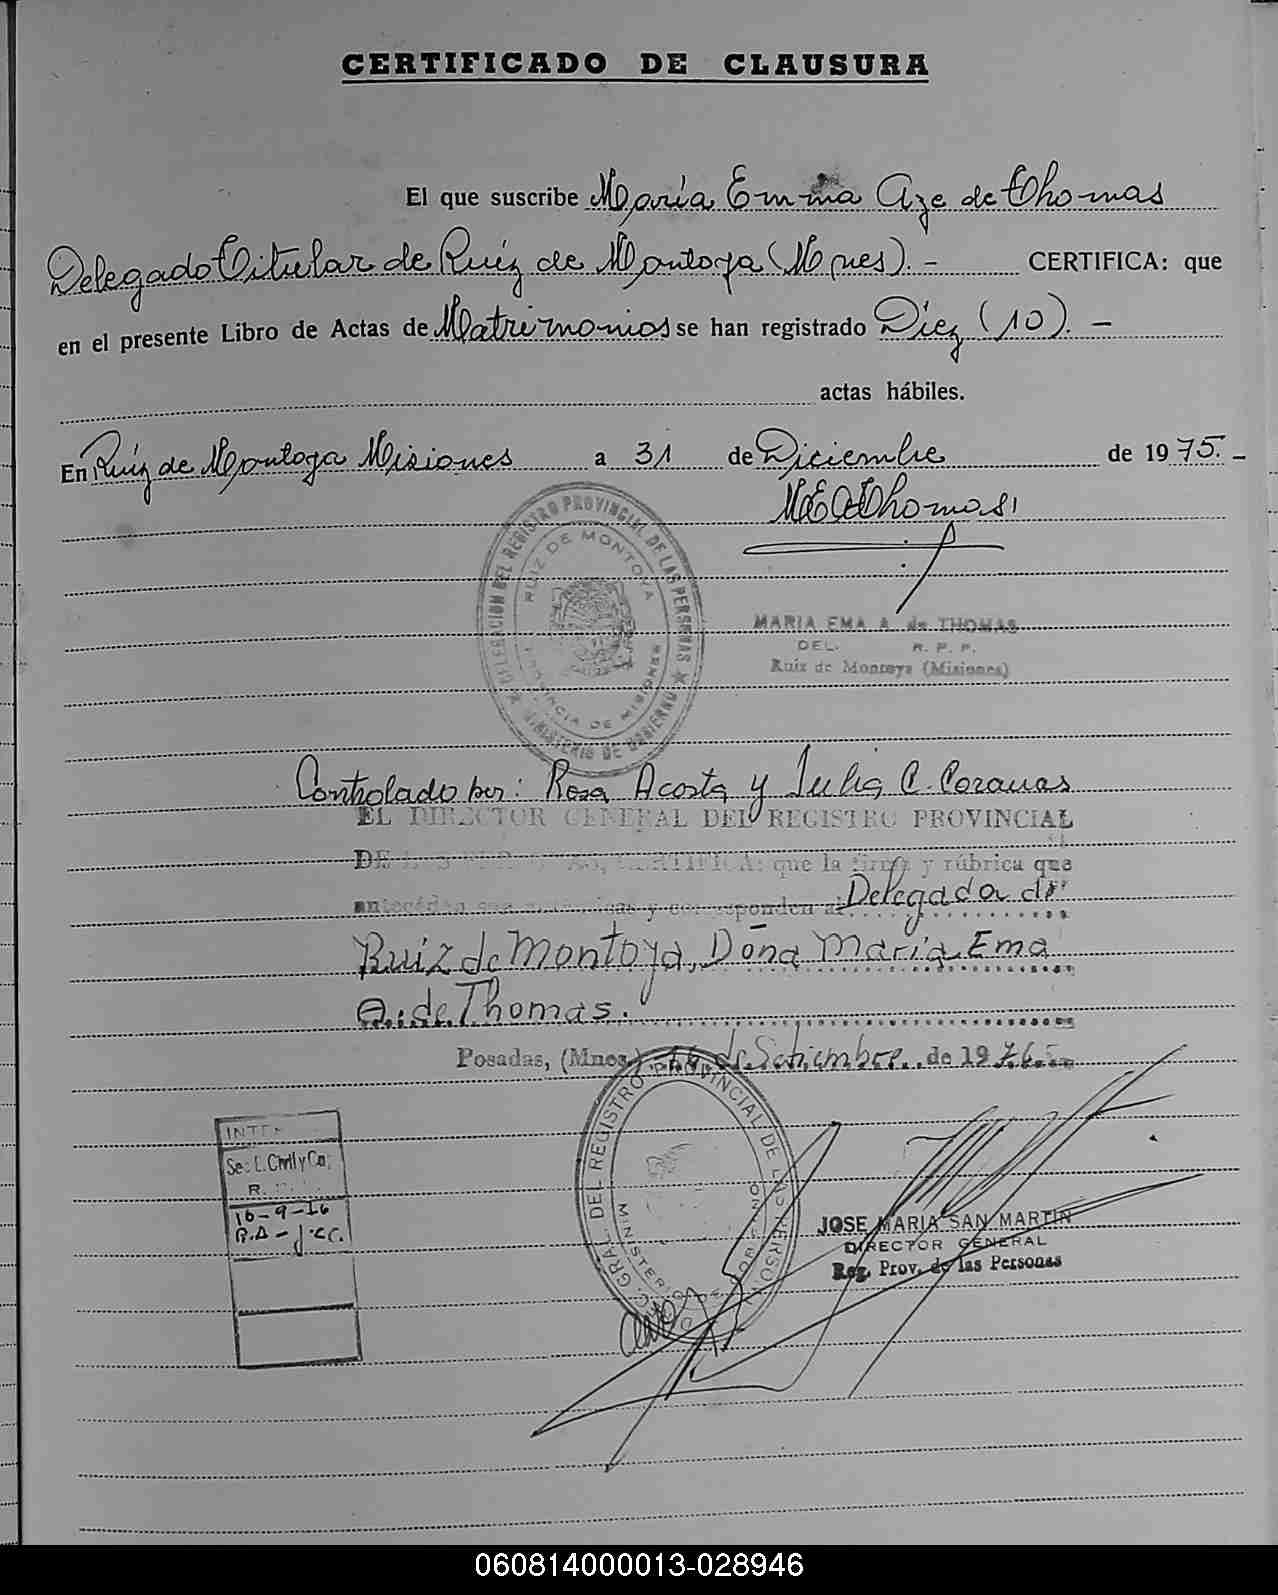 CERTIFICADO DE CLAUSURA
El que suscribe María Emma Aze de Thomas
Delegado Titular de Ruíz de Montoya (Mnes). - CERTIFICA: que
en el presente Libro de Actas de Matrimonios se han registrado Diez (10). -
actas hábiles.
En Ruíz de Montoya Misiones a 31 de Diciembre de 1975. -
M E A de Thomas
DELEGACION DEL REGISTRO PROVINCIAL DE LAS PERSONAS
RUIZ DE MONTOYA
PROVINCIA DE MISIONES
MINISTERIO DE GOBIERNO
MARIA EMA A. de THOMAS
DEL. R. P. P.
Ruiz de Montoya (Misiones)
Controlado por: Rosa Acosta y Julia C.
EL DIRECTOR GENERAL DEL REGISTRO PROVINCIAL
DE LAS PERSONAS, CERTIFICA: que la firma y rúbrica que
anteceden son auténticas y corresponden al Delegada de
Ruiz de Montoya, Doña María Ema
A. de Thomas.
Posadas, (Mnes.) 16 de Setiembre de 1976
GRAL. DEL REGISTRO PROVINCIAL DE LAS PERSONAS
MINISTERIO DE GOBIERNO
Sec. L. Civil y Ca
R.
16-9-76
R.A - J.C.C.
JOSE MARIA SAN MARTIN
DIRECTOR GENERAL
Reg. Prov. de las Personas
060814000013-028946